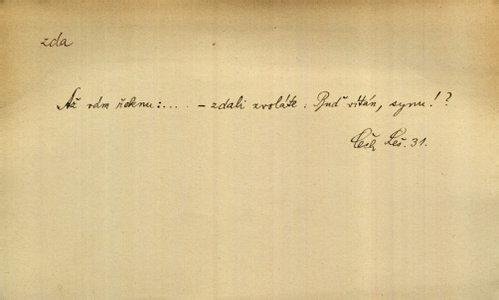 zda
Až vám řeknu:.... – zdali zvoláte: Buď vítán, synu!?
Čech Leš. 31.